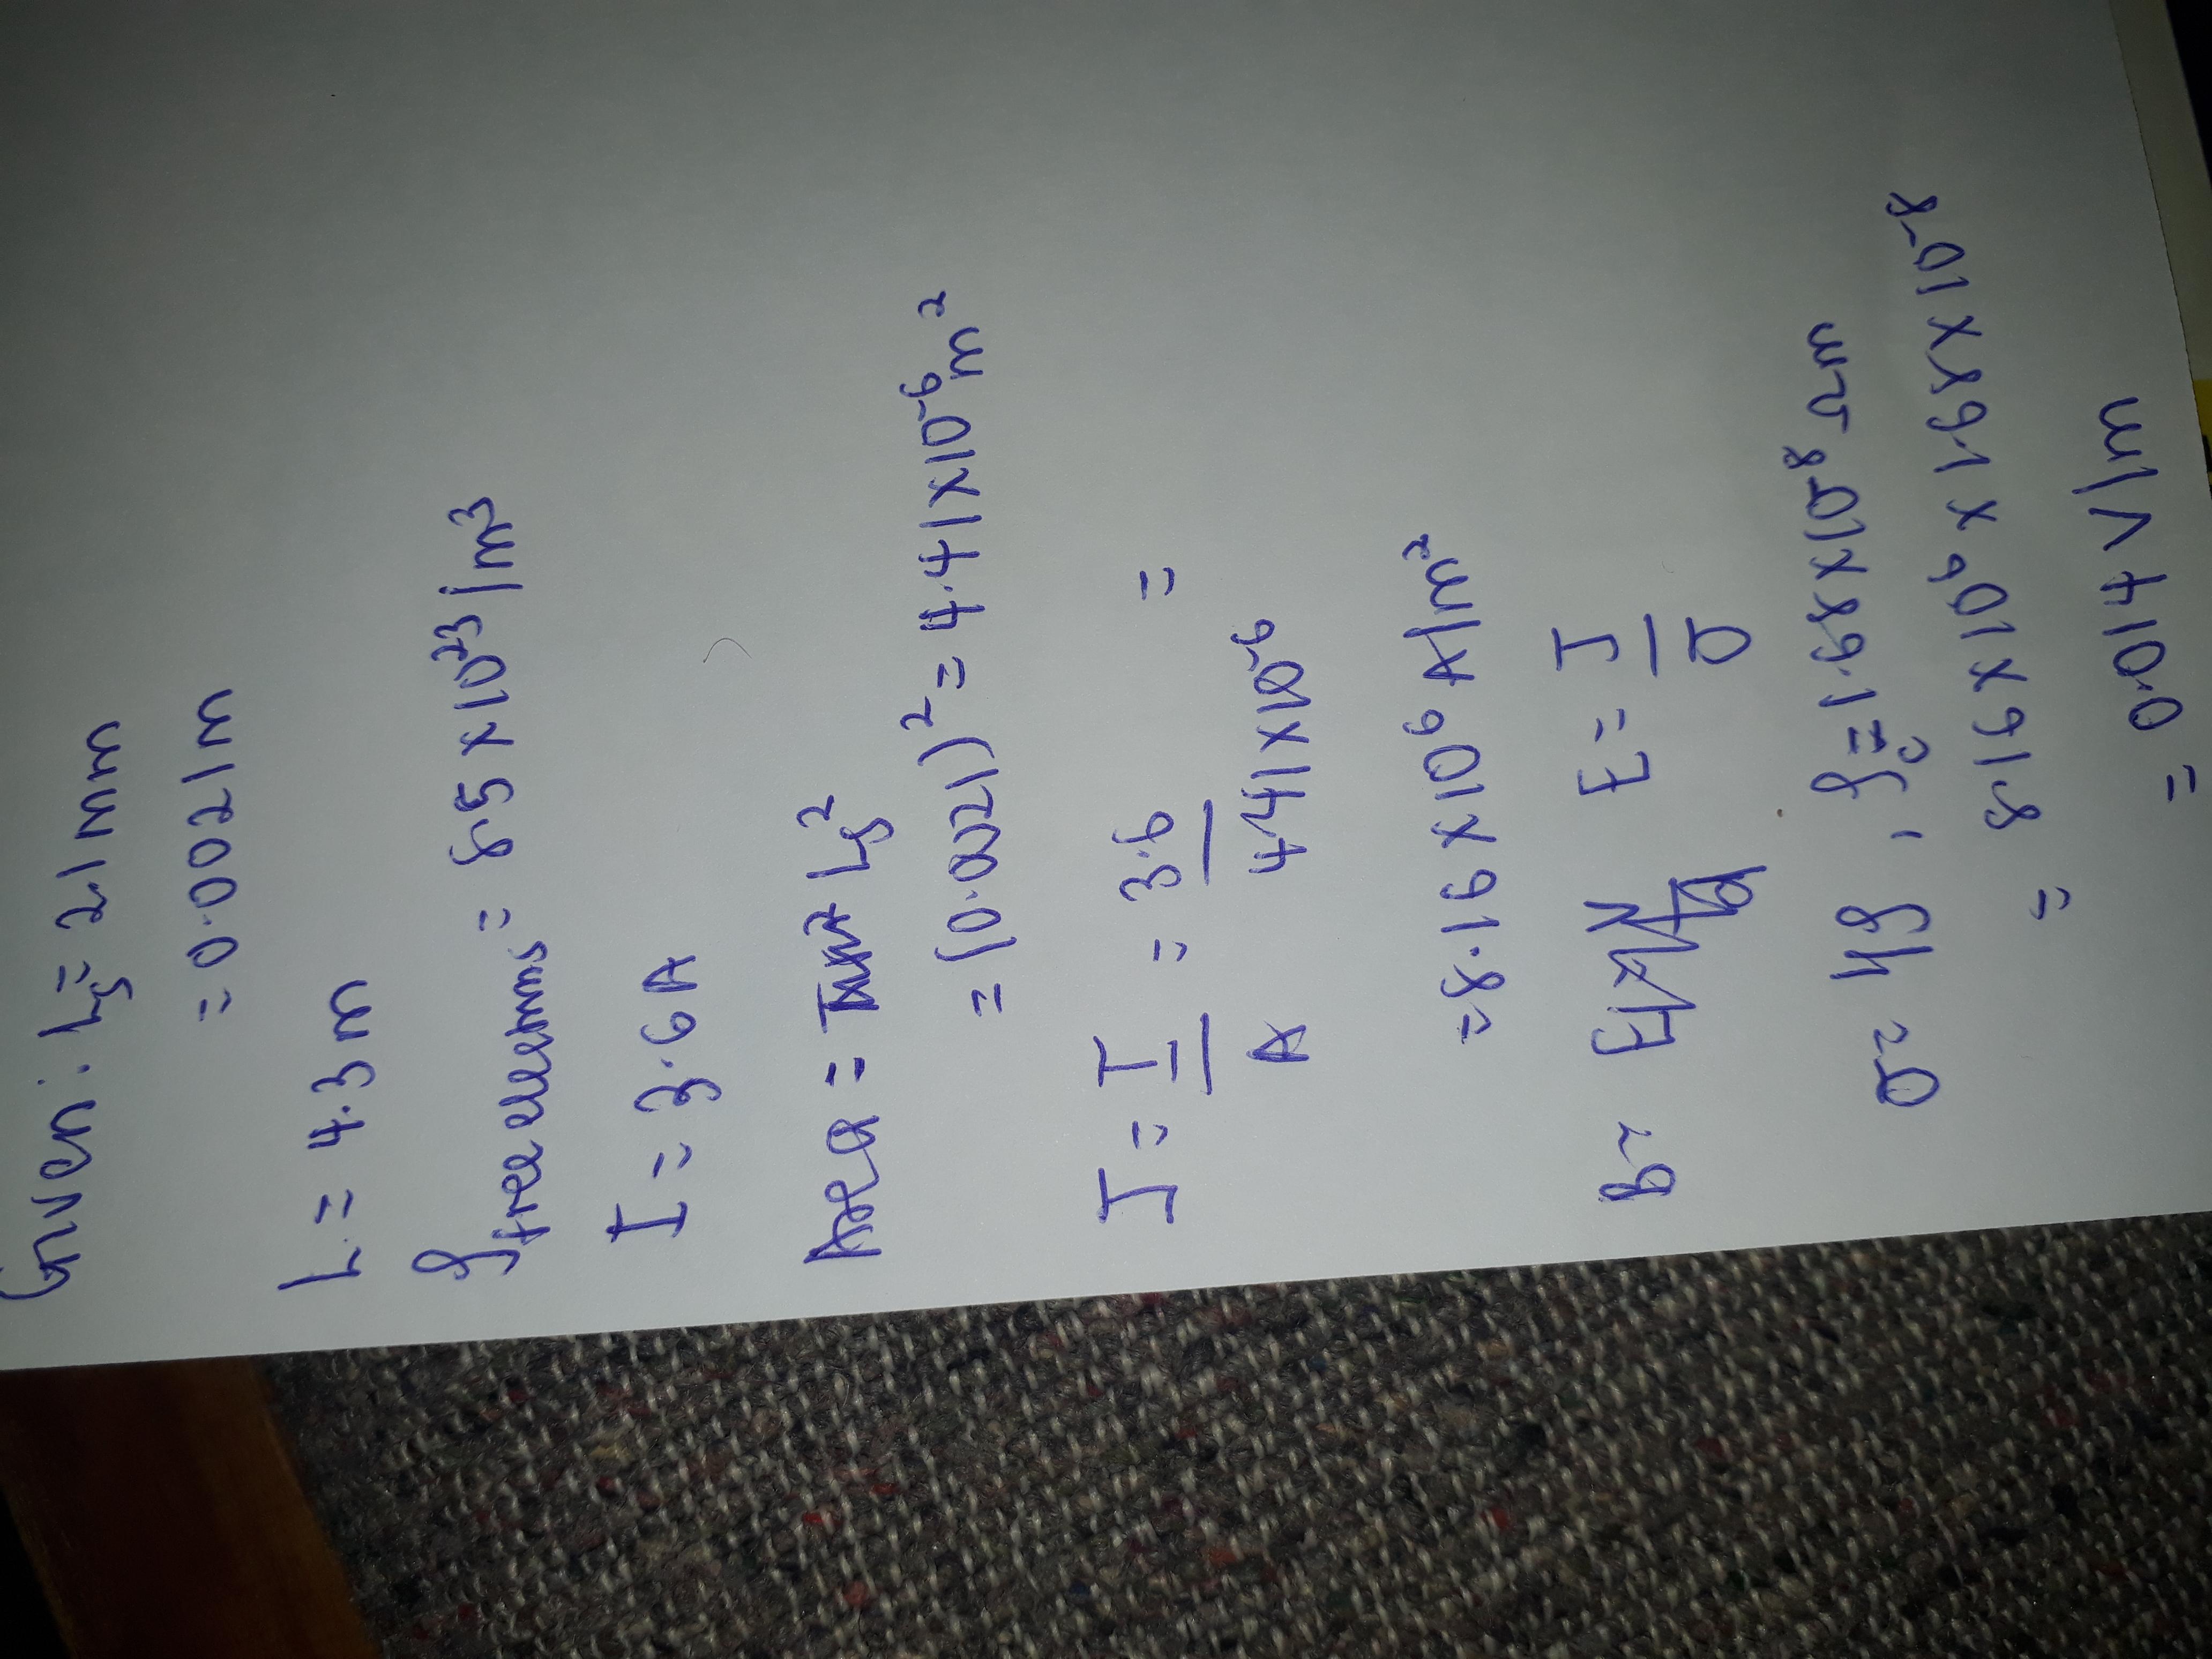 Given: Ls = 2.1 mm
= 0.0021 m
L = 4.3 m
ρfree electrons = 8.5 x 10^23 / m3
I = 3.6 A
Area = Ls²
= (0.0021)² = 4.41 x 10^-6 m²
J = I/A = 3.6 / 4.41 x 10^-6 =
= 8.16 x 10^6 A/m²
b- E = J/σ
σ = 1/ρ , ρc = 1.68 x 10^-8 Ωm
= 8.16 x 10^6 x 1.68 x 10^-8
= 0.014 V/m